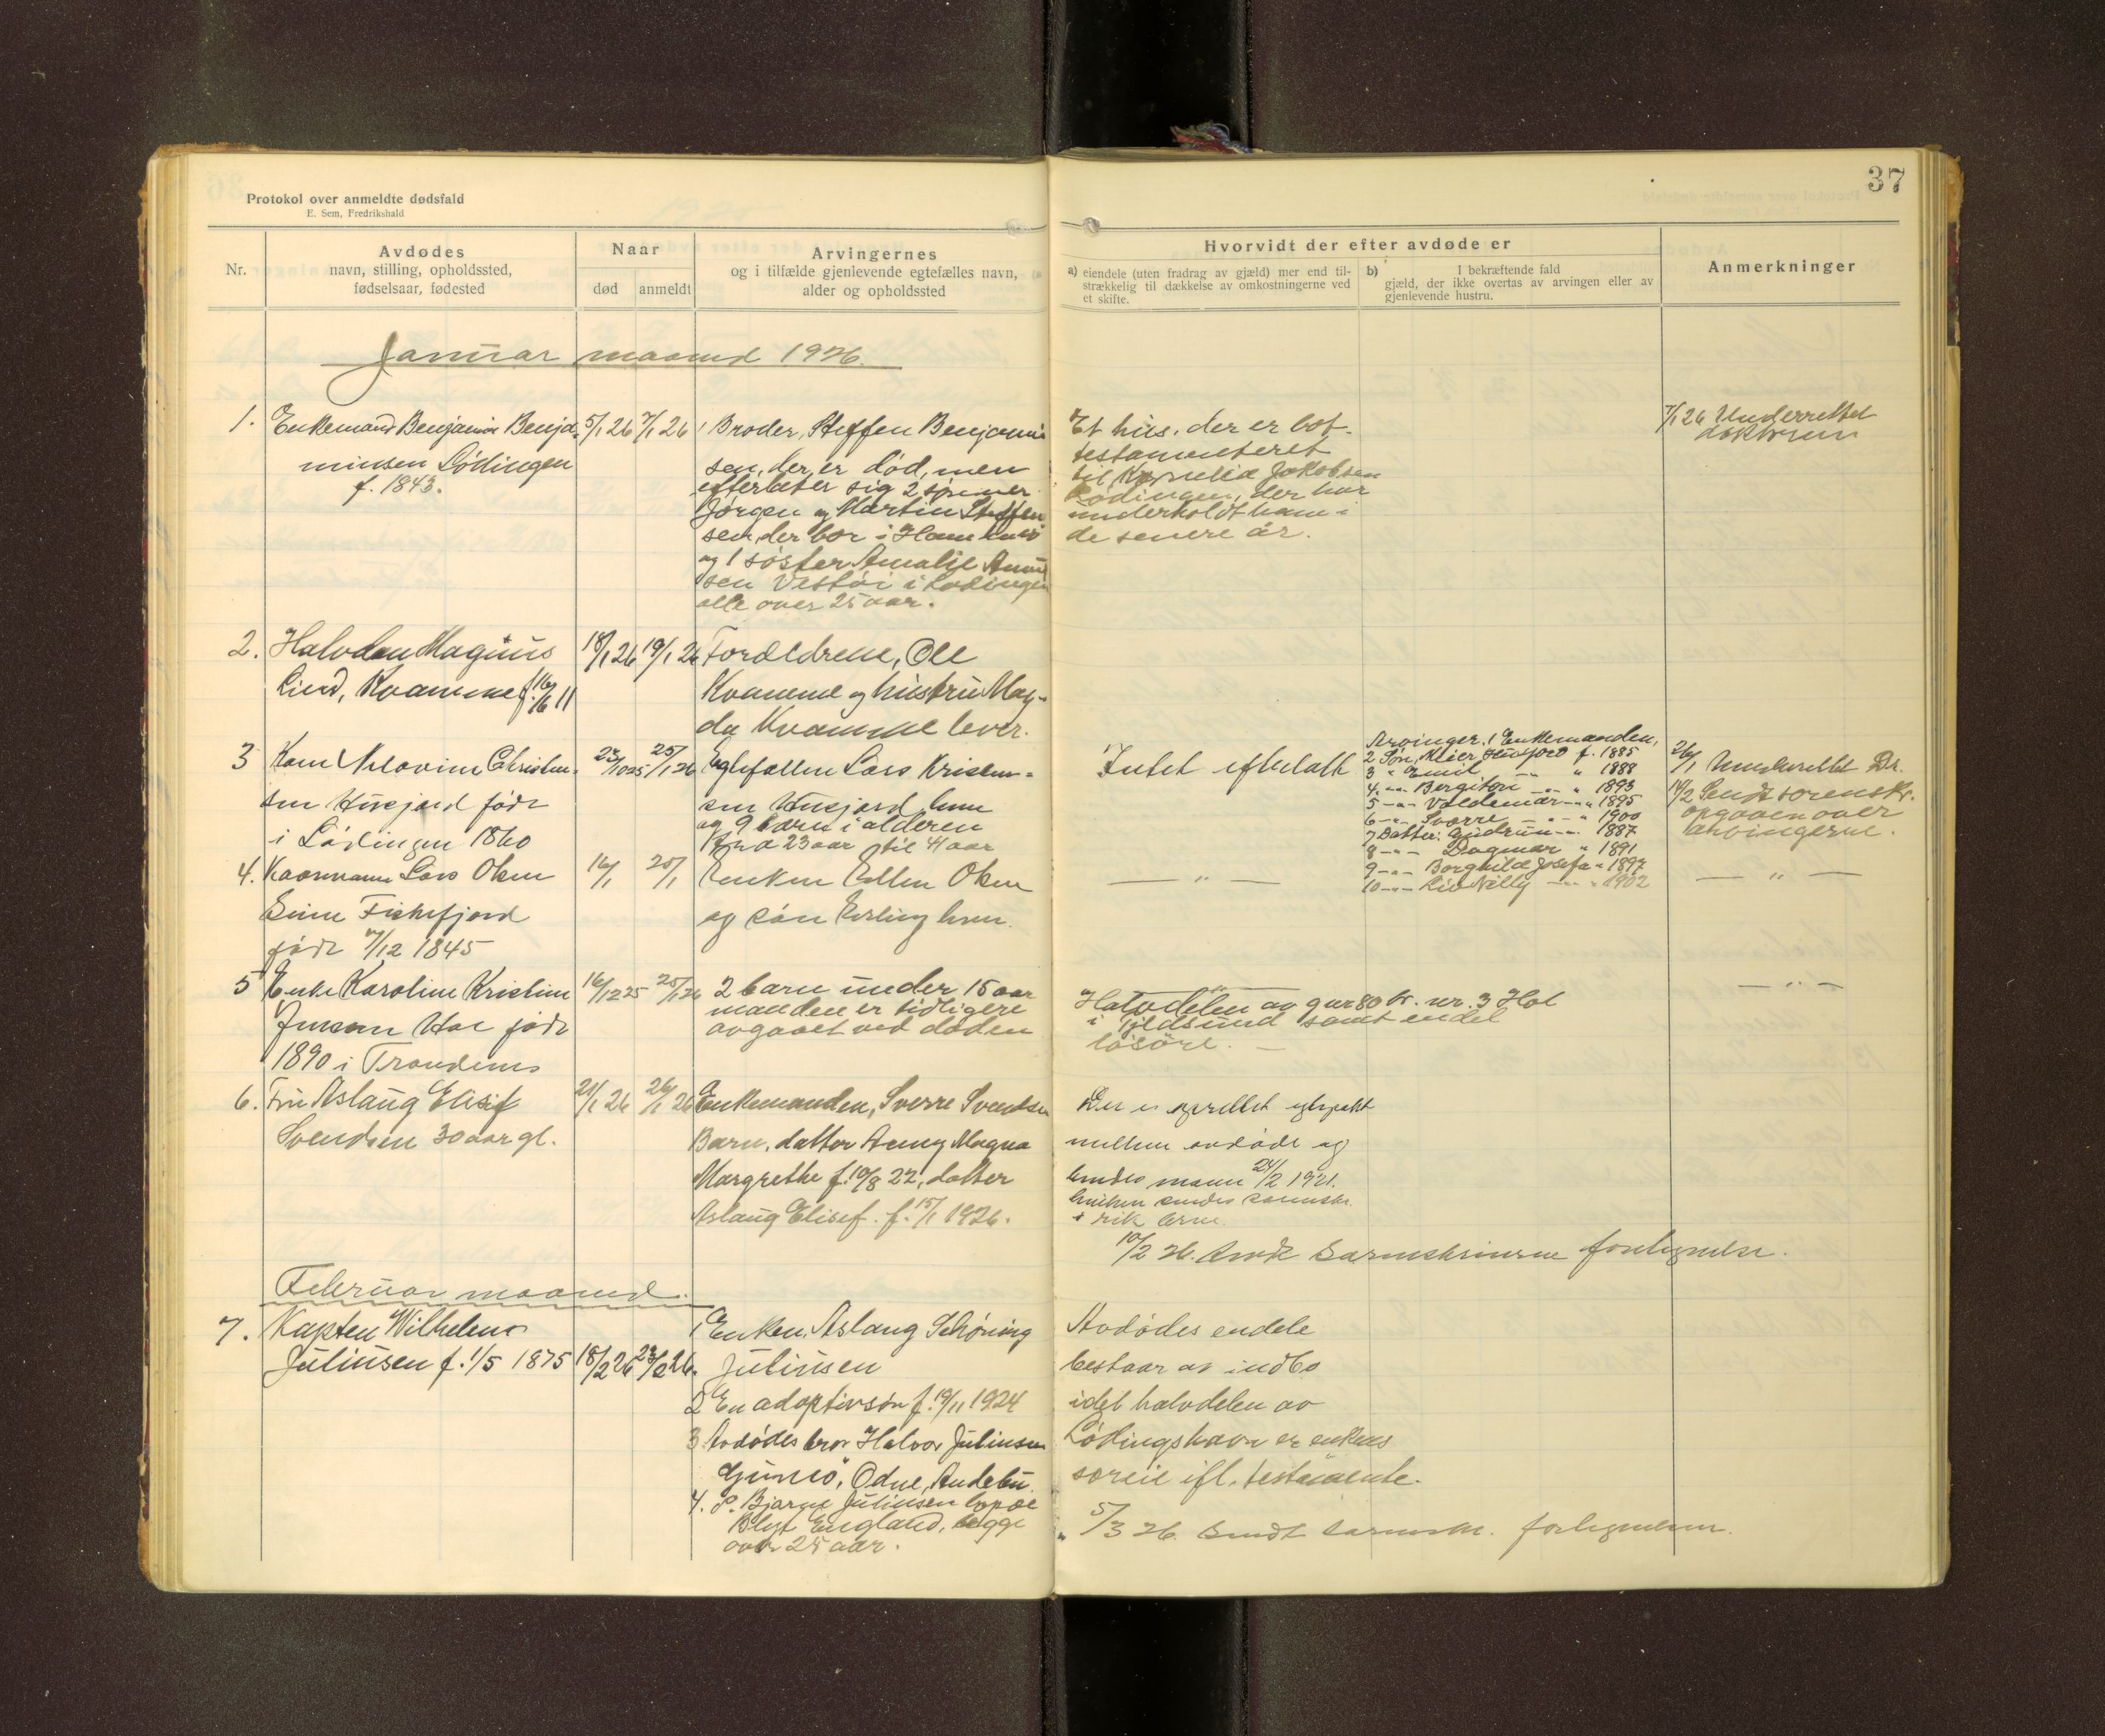 37
Protokol over anmeldte dødsfald
E. Sem, Fredrikshald
Nr.
Avdødes
navn, stilling, opholdssted,
fødselsaar, fødested
Naar
død
anmeldt
Arvingernes
og i tilfælde gjenlevende egtefælles navn,
alder og opholdssted
Hvorvidt der efter avdøde er
a) eiendele (uten fradrag av gjæld) mer end til-
strækkelig til dækkelse av omkostningerne ved
et skifte.
b) I bekræftende fald
gjæld, der ikke overtas av arvingen eller av
gjenlevende hustru.
Anmerkninger
Januar maaned 1926.
1. Enkemand Benjamin Benja-
minsen Lødingen
f. 1843.
5/1 26
7/1 26
1 Broder, Steffen Benjamin
sen, der er død, men
efterlater sig 2 sønner
Jørgen og Martin Steffen
sen, der bor i
og 1 søster Amalie
sen Vestøi i Lødingen
alle over 25 aar.
Et hus, der er bot-
testamenteret
til Jakobsen
Lødingen, der har
underholdt ham i
de senere år.
7/1 26 Underrettet
doktoren
2. Halvdan Magnus
Lind, Kvamme f. 16/6 11
18/1 26
19/1 26
Forældrene, Ole
Kvamme og hustru Mag-
da Kvamme lever.
3 Kone Christen-
sen Husjord født
i Lødingen 1860
23/10 25
25/1 26
Egtefællen Lars Kristen-
sen Husjord
og 9 barn i alderen
fra 23 aar til 41 aar
Intet efterlatt
Arvinger: 1 Enkemanden,
2 Søn, Meier Husjord f. 1885
3 " Emil -"- " 1888
4 -"- Bergiton -"- " 1893
5 -"- Valdemar -"- " 1895
6 -"- Sverre -"- " 1900
7 Datter: Gudrun -"- 1887
8 -"- Dagmar " 1891
9 -"- Borghild Josefa " 1897
10 -"- Liv Nelly -"- " 1902
26/1 Underrettet Dr.
Sendt sorenskr.
opgaven over
arvingerne.
4. Kaarmann Lars Olsen
Fiskefjord
født 7/12 1845
16/1
25/1
Enken Ellen Olsen
og søn Erling
— " —
— " —
5 Enke Karoline Kristine
Jensen Hol født
1890 i Trondenes
16/12 25
25/1 26
2 barn under 15 aar
manden er tidligere
avgaaet ved døden
— " —
Halvdelen av gnr 80 br. nr. 3 Hol
i Tjeldsund samt endel
løsøre. —
— " —
6. Fru Aslaug Elisif
Svendsen 30 aar gl.
21/1 26
26/1 26
Enkemanden, Sverre Svendsen
Barn, datter Magna
Margrethe f. 10/8 22, datter
Aslaug Elisef. f. 15/1 1926.
Der er oprettet egtepakt
mellem avdøde og
hendes mann 24/2 1921.
hvilken sendes
10/2 26. Sorenskriveren
Februar maaned.
7. Kaptein Wilhelm
Juliusen f. 1/5 1875
18/2 26
23/2 26.
1 Enken, Aslaug Schøning
Juliusen
2 En adoptivsøn f. 19/11 1924
3 Avdødes bror Halvor Juliusen
Odne, Andebu.
4. Do. Bjarne Juliusen
Blyt England, begge
over 25 aar.
Avdødes endele
bestaar av indbo
idet halvdelen av
Lødingshavn er enkens
særeie ifl. testamente.
5/3 26. Sendt sorenskr.